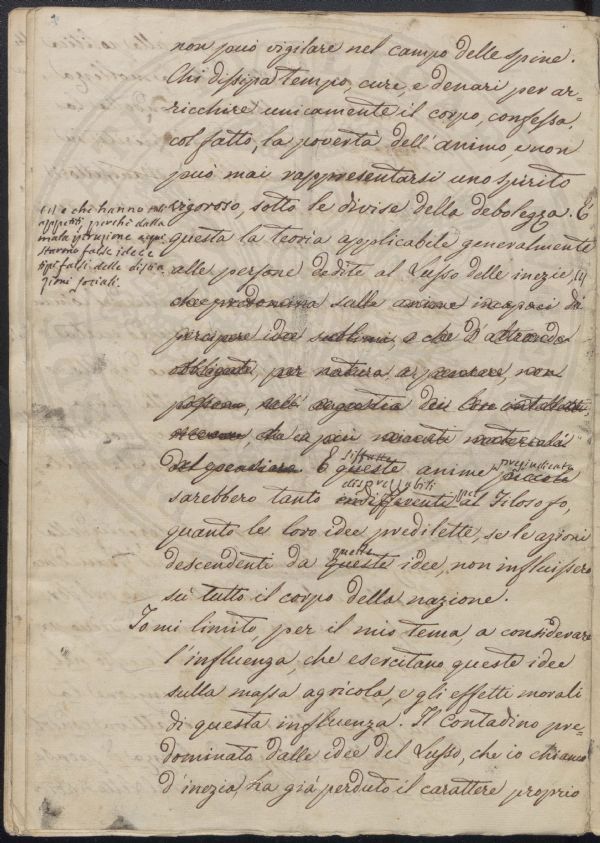 non può vigilare nel campo delle spine.
Chi dissipa tempo, cure, e denari per ar-
ricchire unicamente il corpo, confessa,
col fatto, la povertà dell'animo, e non
può mai rappresentarsi uno spirito
vigoroso, sotto le divise della debolezza. È
questa la teoria applicabile generalmente
alle persone dedite al Lusso delle inezie, (1)
(1) e che hanno tali
appetiti, perchè dalla
mala istruzione acqui
starono false idee e
tipi falsi delle distin
zioni sociali.
che predomina sulle anime incapaci di
percepire idee sublimi, e che d'altronde
obbligate, per natura, a pensare, non
possono, nell' angustia dei loro intelletti
che i più materiali
del godimento. E queste siffatte anime piccole pregiudicate
sarebbero tanto indifferenti disprezzabili al Filosofo,
quanto le loro idee predilette, se le azioni
descendenti da queste quelle idee, non influissero
su tutto il corpo della nazione.
Io mi limito, per il mio tema, a considerare
l'influenza, che esercitano queste idee
sulla massa agricola, e gli effetti morali
di questa influenza. Il Contadino pre-
dominato dalle idee del Lusso, che io chiamo
d'inezia, ha già perduto il carattere proprio